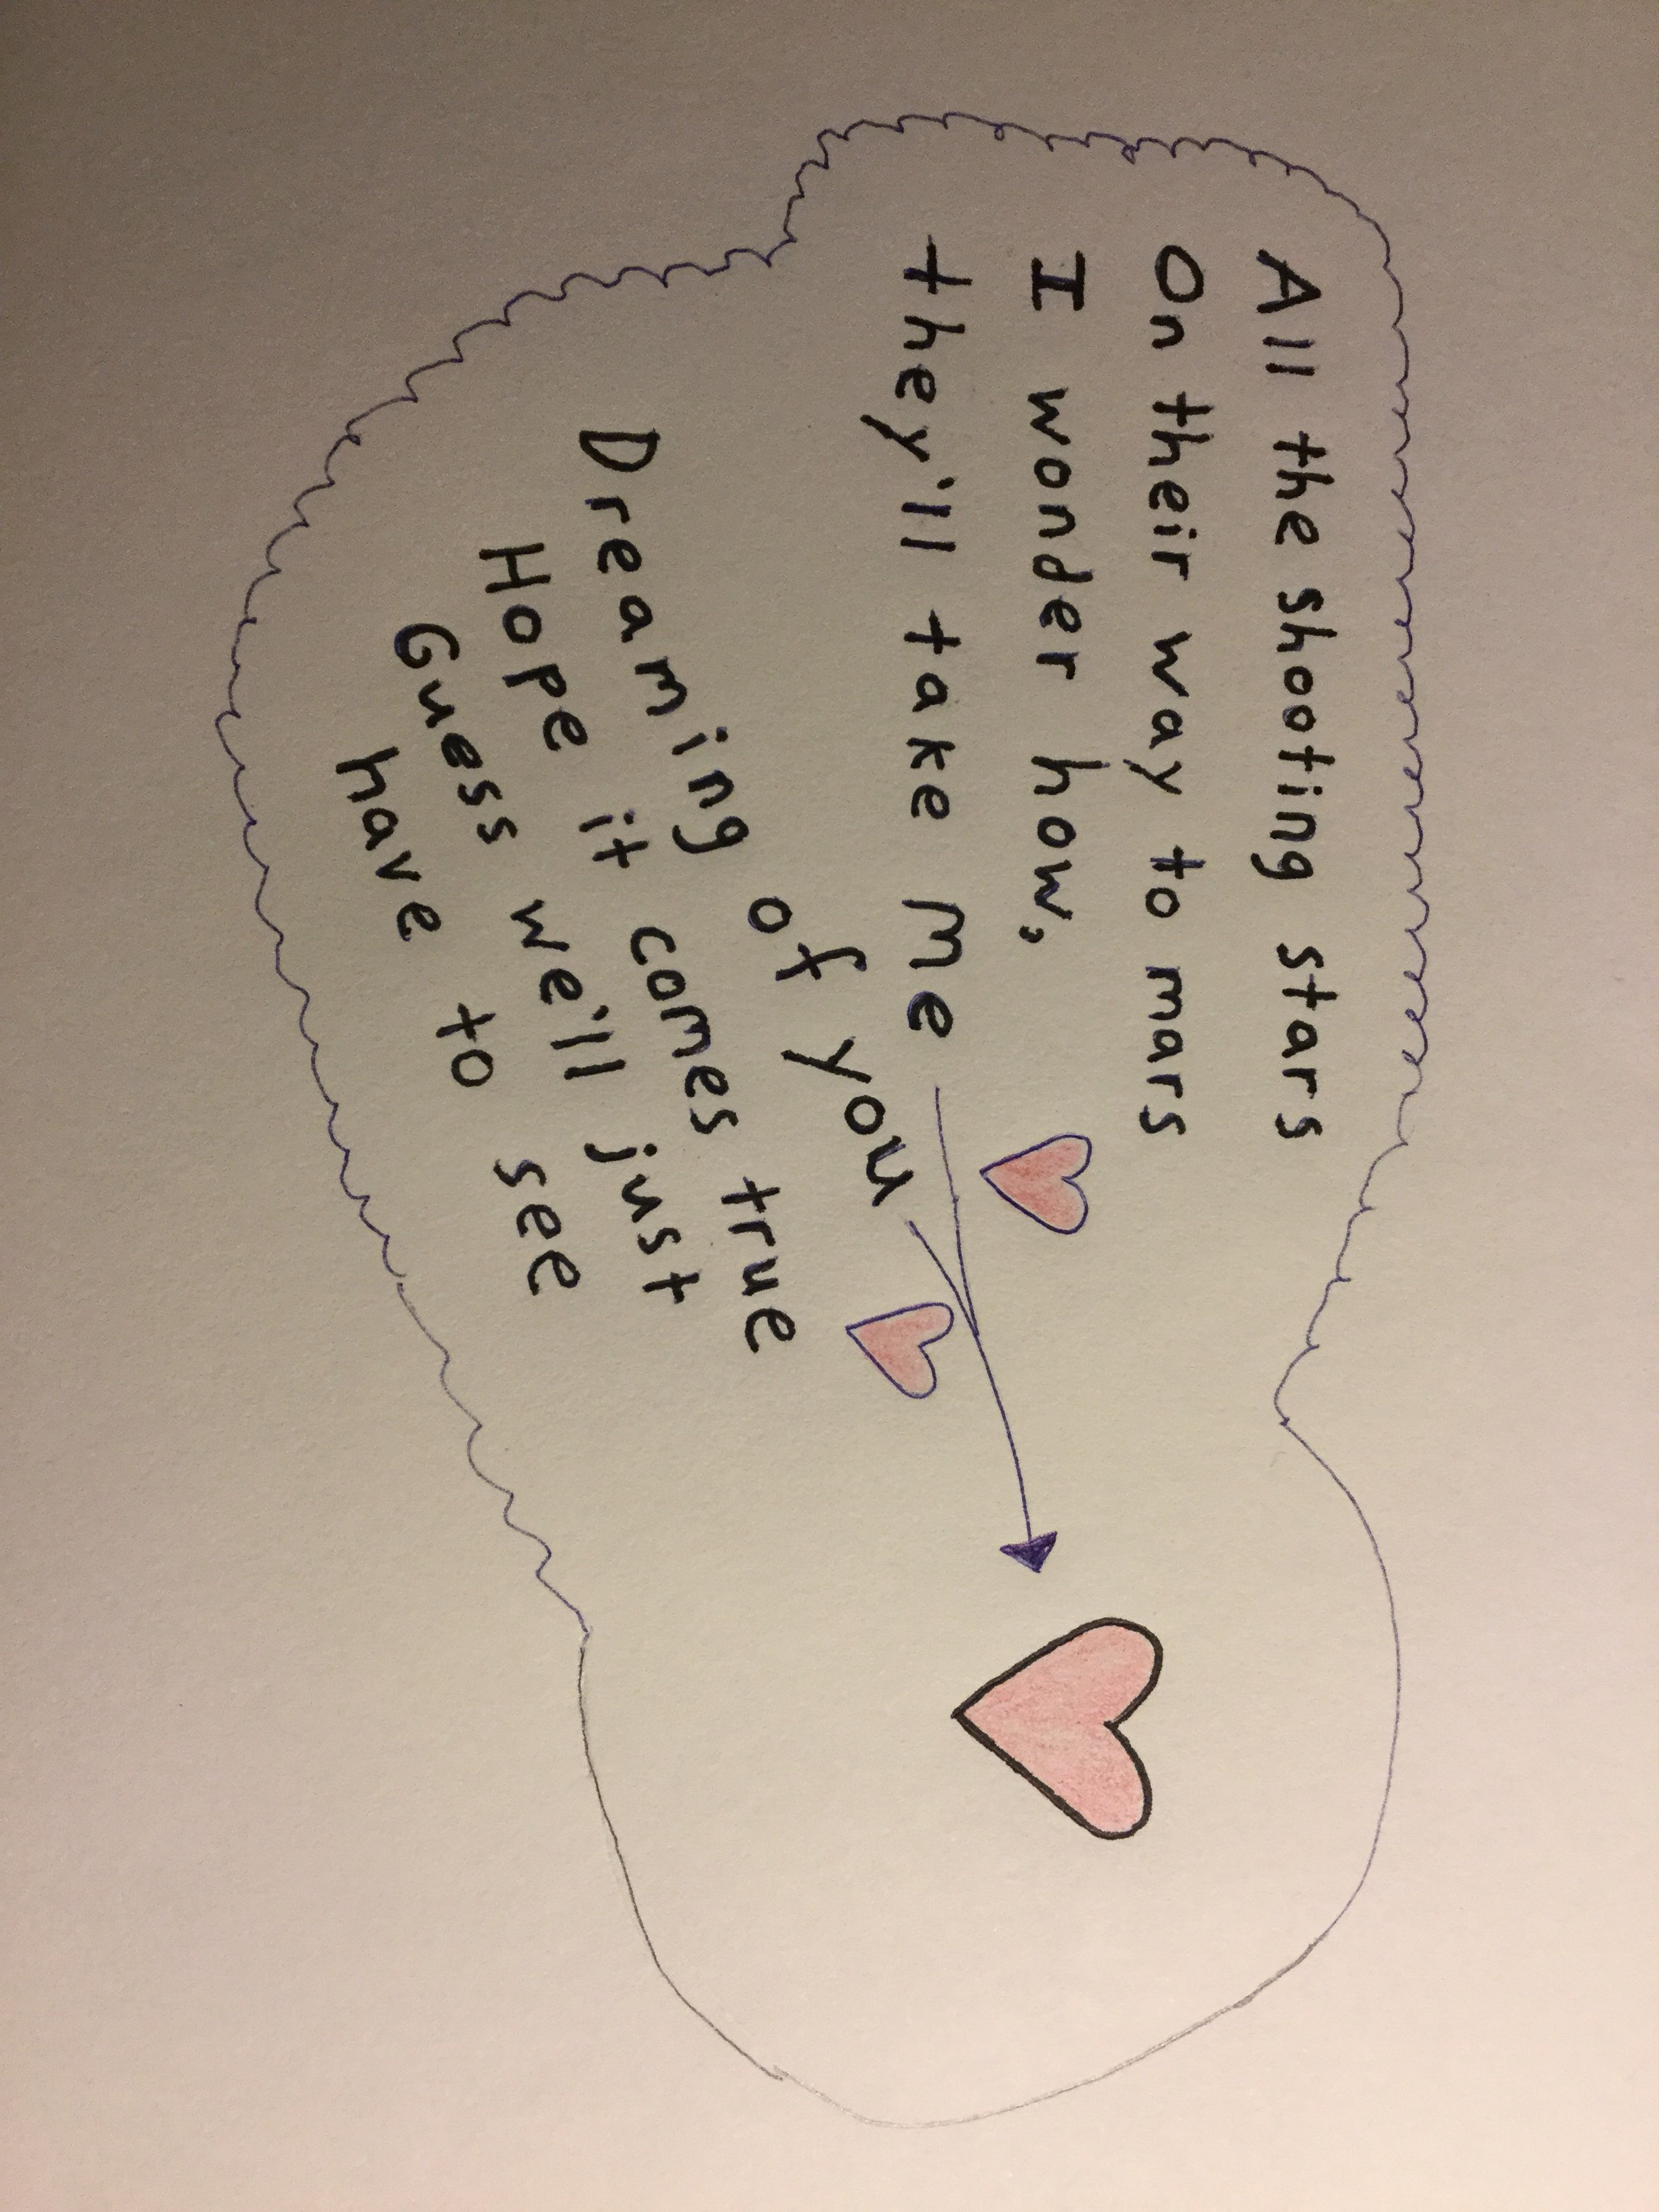 All the shooting stars
On their way to mars
I wonder how,
they'll take me
Dreaming of you
Hope it comes true
Guess we'll just
have to see